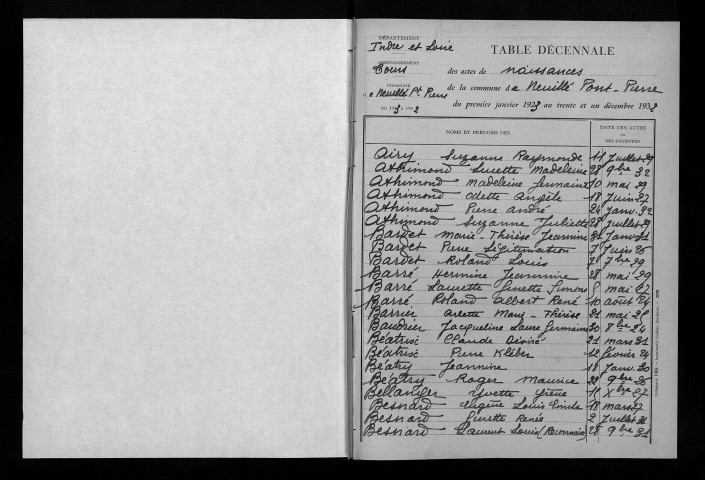 DÉPARTEMENT
Indre et Loire
TABLE DÉCENNALE
ARRONDISSEMENT
Tours
des actes de naissances
COMMUNE
de la commune de Neuillé Pont Pierre
de Neuillé Pt Pierre
du premier janvier 1923 au trente et un décembre 1932
An 1923 à 1932
NOMS ET PRÉNOMS DES
DATE DES ACTES
OU
DES REGISTRES
Airy Suzanne Raymonde 11 Juillet 29
Athimond Lucette Madeleine 28 9bre 32
Athimond Madeleine Germaine 10 mai 29
Athimond Odette Angèle 18 Juin 27
Athimond Pierre André 24 Janv. 32
Athimond Suzanne Juliette 28 Juillet 29
Bardet Marie-Thérèse Jeannine 31 Janv 31
Bardet Pierre Légitimation 7 Juin 25
Bardet Roland Louis 7 7bre 29
Barré Hermine Jeannine 28 mai 29
Barré Laurette Ginette Simone 5 mai 27
Barré Roland Albert René 10 août 24
Barrier Arlette Marie-Thérèse 21 mai 25
Baudrier Jacqueline Laure Germaine 30 8bre 24
Béatrix Claude Désiré 21 mars 31
Béatrix Pierre Kléber 12 février 24
Béatry Jeannine 18 Janv. 30
Béatry Roger Maurice 9bre 25
Bellanger Yvette Irène 11 Xbre 27
Besnard Eugène Louis Emile 18 mars 27
Besnard Ginette Renée 2 Juillet 31
Besnard Laurent Louis (Reconnais) 28 9bre 31